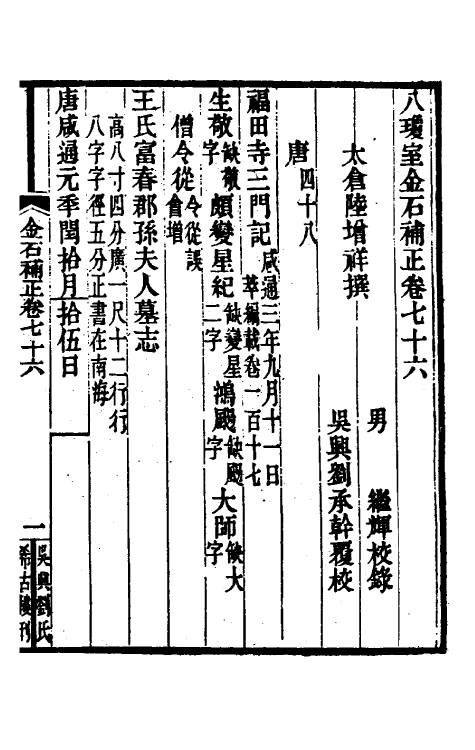 八瓊室金石補正卷七十六
太倉陸增祥撰
男　繼煇校錄
吳興劉承幹覆校
唐四十八
福田寺三門記咸通三年九月十一日
萃編載卷一百十七
生敬缺敬字頗變星紀缺變星二字鴻颺缺颺字大師缺大字
僧令從令從誤會增
王氏富春郡孫夫人墓志
高八寸四分廣一尺十二行行
八字字徑五分正書在南海
唐咸通元季閏拾月拾伍日
金石補正卷七十六
一
吳興劉氏
希古樓刊